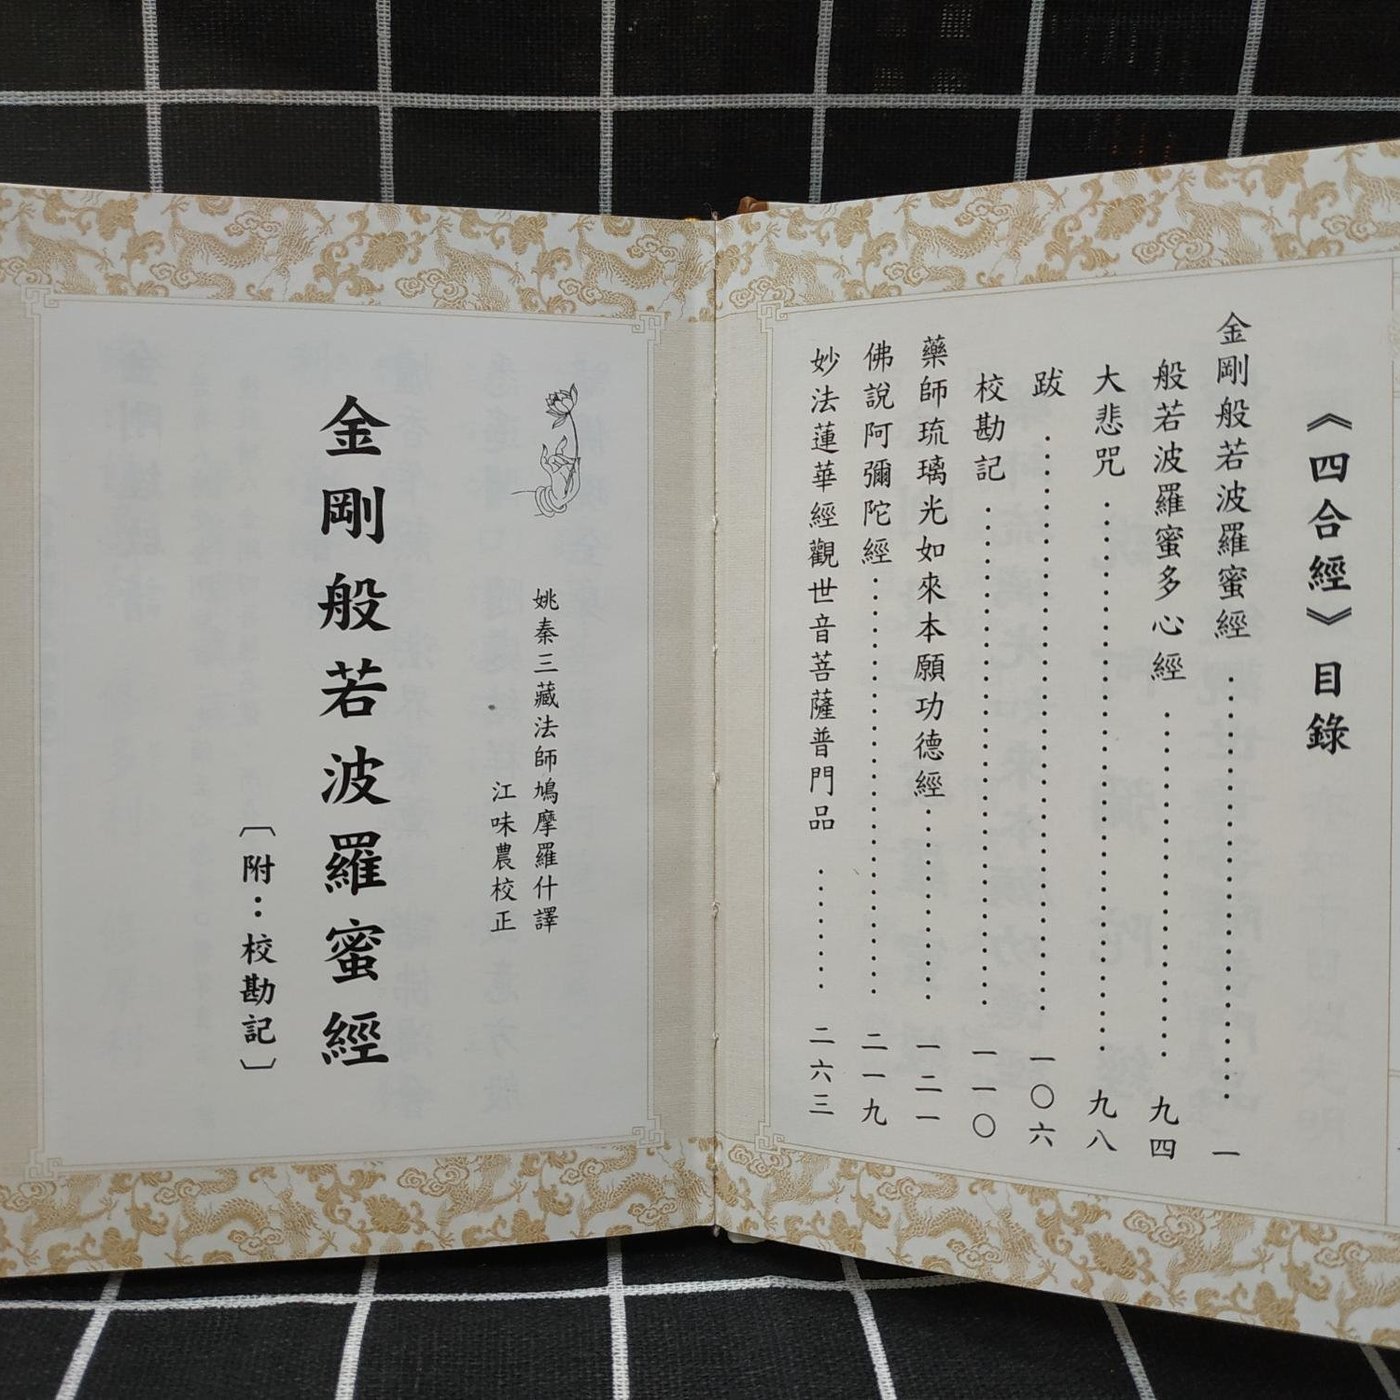 《四合經》目錄
金剛般若波羅蜜經··················一
般若波羅蜜多心經··················九四
大悲咒··················九八
跋··················一〇六
校勘記··················一一〇
藥師琉璃光如來本願功德經··········一二一
佛說阿彌陀經··················二一九
妙法蓮華經觀世音菩薩普門品·······二六三
姚秦三藏法師鳩摩羅什譯
江味農校正
金剛般若波羅蜜經
〔附：校勘記〕